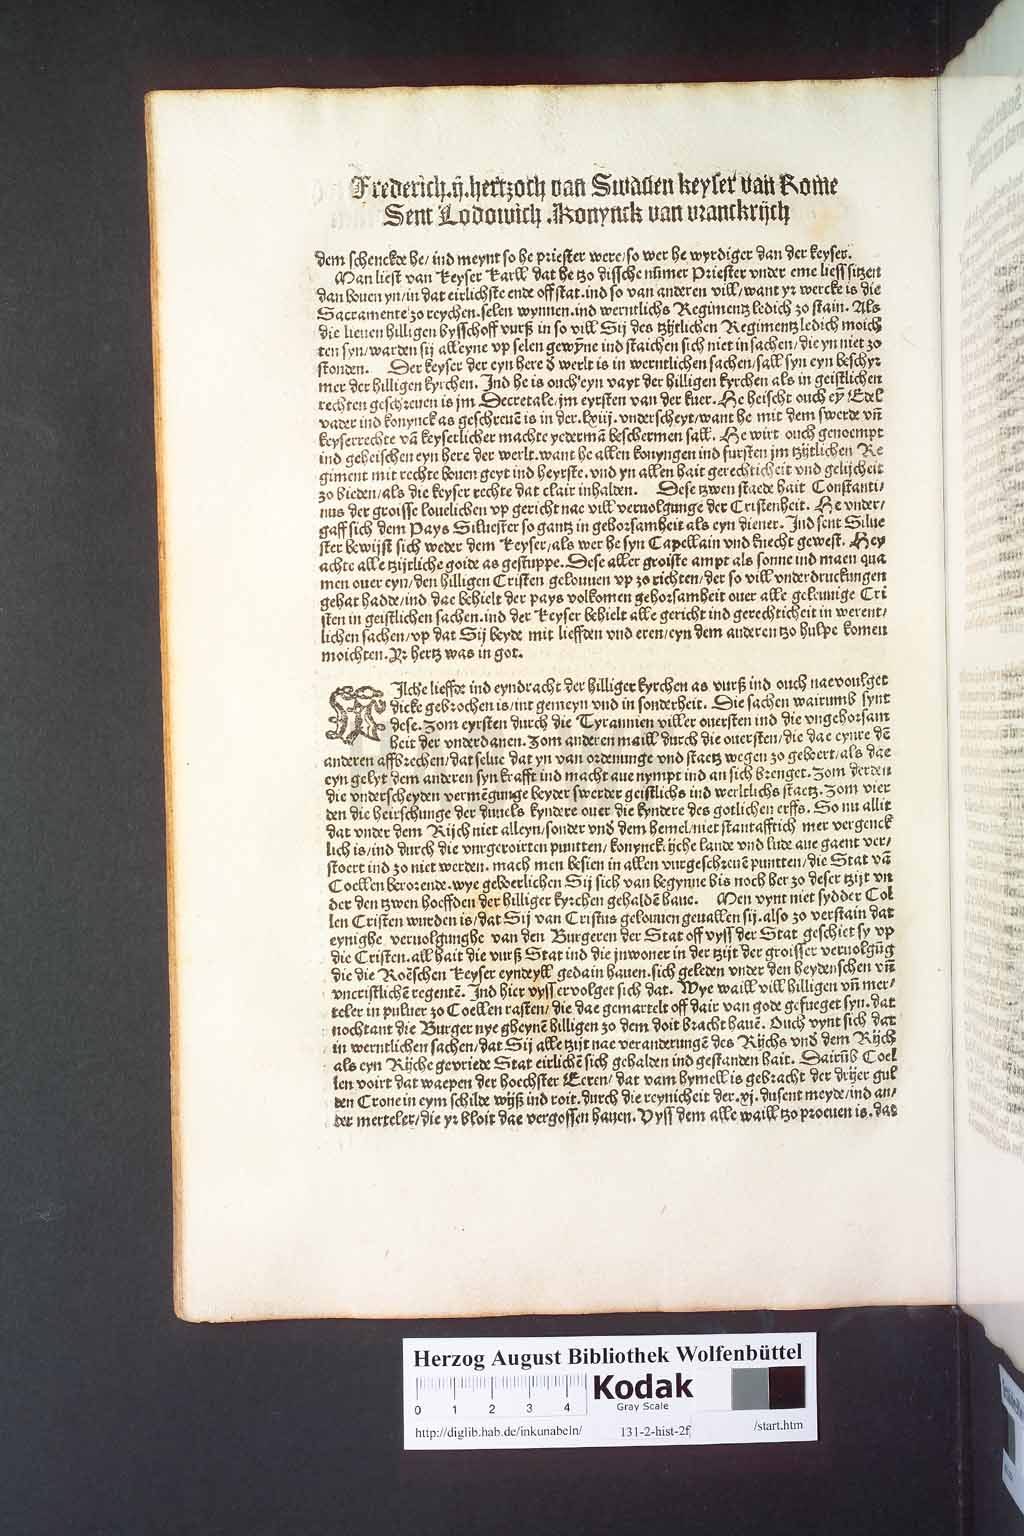 Frederich.ij.hertzoch van Swaven keyser van Rome
Sent Lodowich .Konynck van vranckrijch
dem schenckde he/ ind meynt so he priester were/so wer he wyrdiger dan der keyser.
Man liest van Keyser Karll dat he tzo dissche nūmer Priester vnder eme liess sitzen
dan bouen yn/in dat eirlichste ende off stat.ind so van anderen vill/want yr wercke is die
Sacramente zo reychen.selen wynnen.ind werntlichs Regimentz ledich zo stain. Als
die lieuen hilligen bysschoff vurß in so vill Sij des tzijtlichen Regimentz ledich moich
ten syn/warden sij alleyne vp selen gewȳne ind staichen sich niet in sachen/die yn niet zo
stonden. Der keyser der eyn here d werlt is in werntlichen sachen/sall syn eyn beschyr
mer der hilligen kyrchen. Ind he is ouch eyn vayt der hilligen kyrchen als in geistlichen
rechten geschreuen is jm Decretale/jm eyrsten van der kuer. He heischt ouch eȳ Edel
vader ind konynck as geschreuē is in der.lxiij.vnderscheyt/want he mit dem swerde vñ
keyserrechte vā keyserlicher machte yedermā beschermen sall. He wirt ouch genoempt
ind geheischen eyn here der werlt.want he allen konyngen ind fursten jm tzijtlichen Re
giment mit rechte bouen geyt ind heyrste.vnd yn allen hait gerechticheit vnd gelijcheit
zo bieden/als die keyser rechte dat clair inhalden. Dese tzwen staede hait Constanti/
nus der groisse louelichen vp gericht nae vill veruolgunge der Cristenheit. He vnder/
gaff sich dem Pays Siluester so gantz in gehorsamheit als eyn diener. Ind sent Silue
ster bewijst sich weder dem Keyser/als wer he syn Capellain vnd knecht gewest. Hey
achte alle tzijtliche goide as gestuppe. Dese aller groiste ampt als sonne ind maen qua
men ouer eyn/den hilligen Cristen gelouuen vp zo richten/der so vill vnderdruckungen
gehat hadde/ind dae behielt der pays volkomen gehorsamheit ouer alle geleunige Cri
sten in geistlichen sachen.ind der Keyser behielt alle gericht ind gerechticheit in werent/
lichen sachen/vp dat Sij beyde mit lieffden vnd eren/eyn dem anderen tzo hulpe komen
moichten. Yr hertz was in got.
Wilche lieffde ind eyndracht der hilliger kyrchen as vurß ind ouch nae voulget
dicke gebrochen is/int gemeyn vnd in sonderheit. Die sachen wairumb synt
dese. Zom eyrsten durch die Tyrannien viller ouersten ind die vngehorsam
heit der vnderdanen. Zom anderen maill durch die ouersten/die dae eynre dē
anderen affbrechen/dat selue dat yn van ordenunge vnd staetz wegen zo gehoert/als dae
eyn gelyt dem anderen syn krafft ind macht aue nympt ind an sich brenget. Zom derden
die vnderscheyden vermēgunge beyder swerder geistlichs ind werltlichs staetz. Zom vier
den die heirschunge der duuels kyndere ouer die kyndere des gotlichen erffs. So nu allit
dat vnder dem Rijch niet alleyn/sonder vnd dem hemel/niet stantafftich mer vergenck
lich is/ind durch die vurgeroirten puntten/konynckrijche lande vnd lude aue gaent ver/
stoert ind zo niet werden. mach men besien in allen vurgeschreuē puntten/die Stat vā
Coellen berorende.wye gebderlichen Sij sich van begynne bis noch her zo deser tzijt vn
der den tzwen hoeffden der hilliger kyrchen gehaldē haue. Men vynt niet sydder Col
len Cristen wurden is/dat Sij van Cristus gelouuen geuallen sij.also zo verstain dat
eynighe veruolgunghe van den Burgeren der Stat off vyss der Stat geschiet sy vp
die Cristen.all hait die vurß Stat ind die jnwoner in der tzijt der groisser veruolgūg
die die Roēschen Keyser eyndeyll gedain hauen.sich geleden vnder den heydenschen vñ
vncristlichē regentē. Ind hier vyss ervolget sich dat. Wye waill vill hilligen vñ mer/
teler in puluer zo Coellen rasten/ die dae gemartelt off dair van gode gefueget syn.dat
nochtant die Burger nye gheynē hilligen zo dem doit bracht hauē. Ouch vynt sich dat
in werntlichen sachen/dat Sij alle tzijt nae veranderungē des Rijchs vnd dem Rijch
als eyn Rijche gevriede Stat eirlichē sich gehalden ind gestanden hait. Dairūb Coel
len voirt dat waepen der hoechster Eeren/ dat vam hymell is gebracht der drijer gul
den Crone in eym schilde wijß ind roit.durch die reynicheit der.xj.dusent meyde/ind an/
der merteler/die yr bloit dae vergossen hauen. Vyss dem alle waill tzo proeuen is.dat
Herzog August Bibliothek Wolfenbüttel
0 1 2 3 4
Kodak
Gray Scale
http://diglib.hab.de/inkunabeln/ 131-2-hist-2f /start.htm